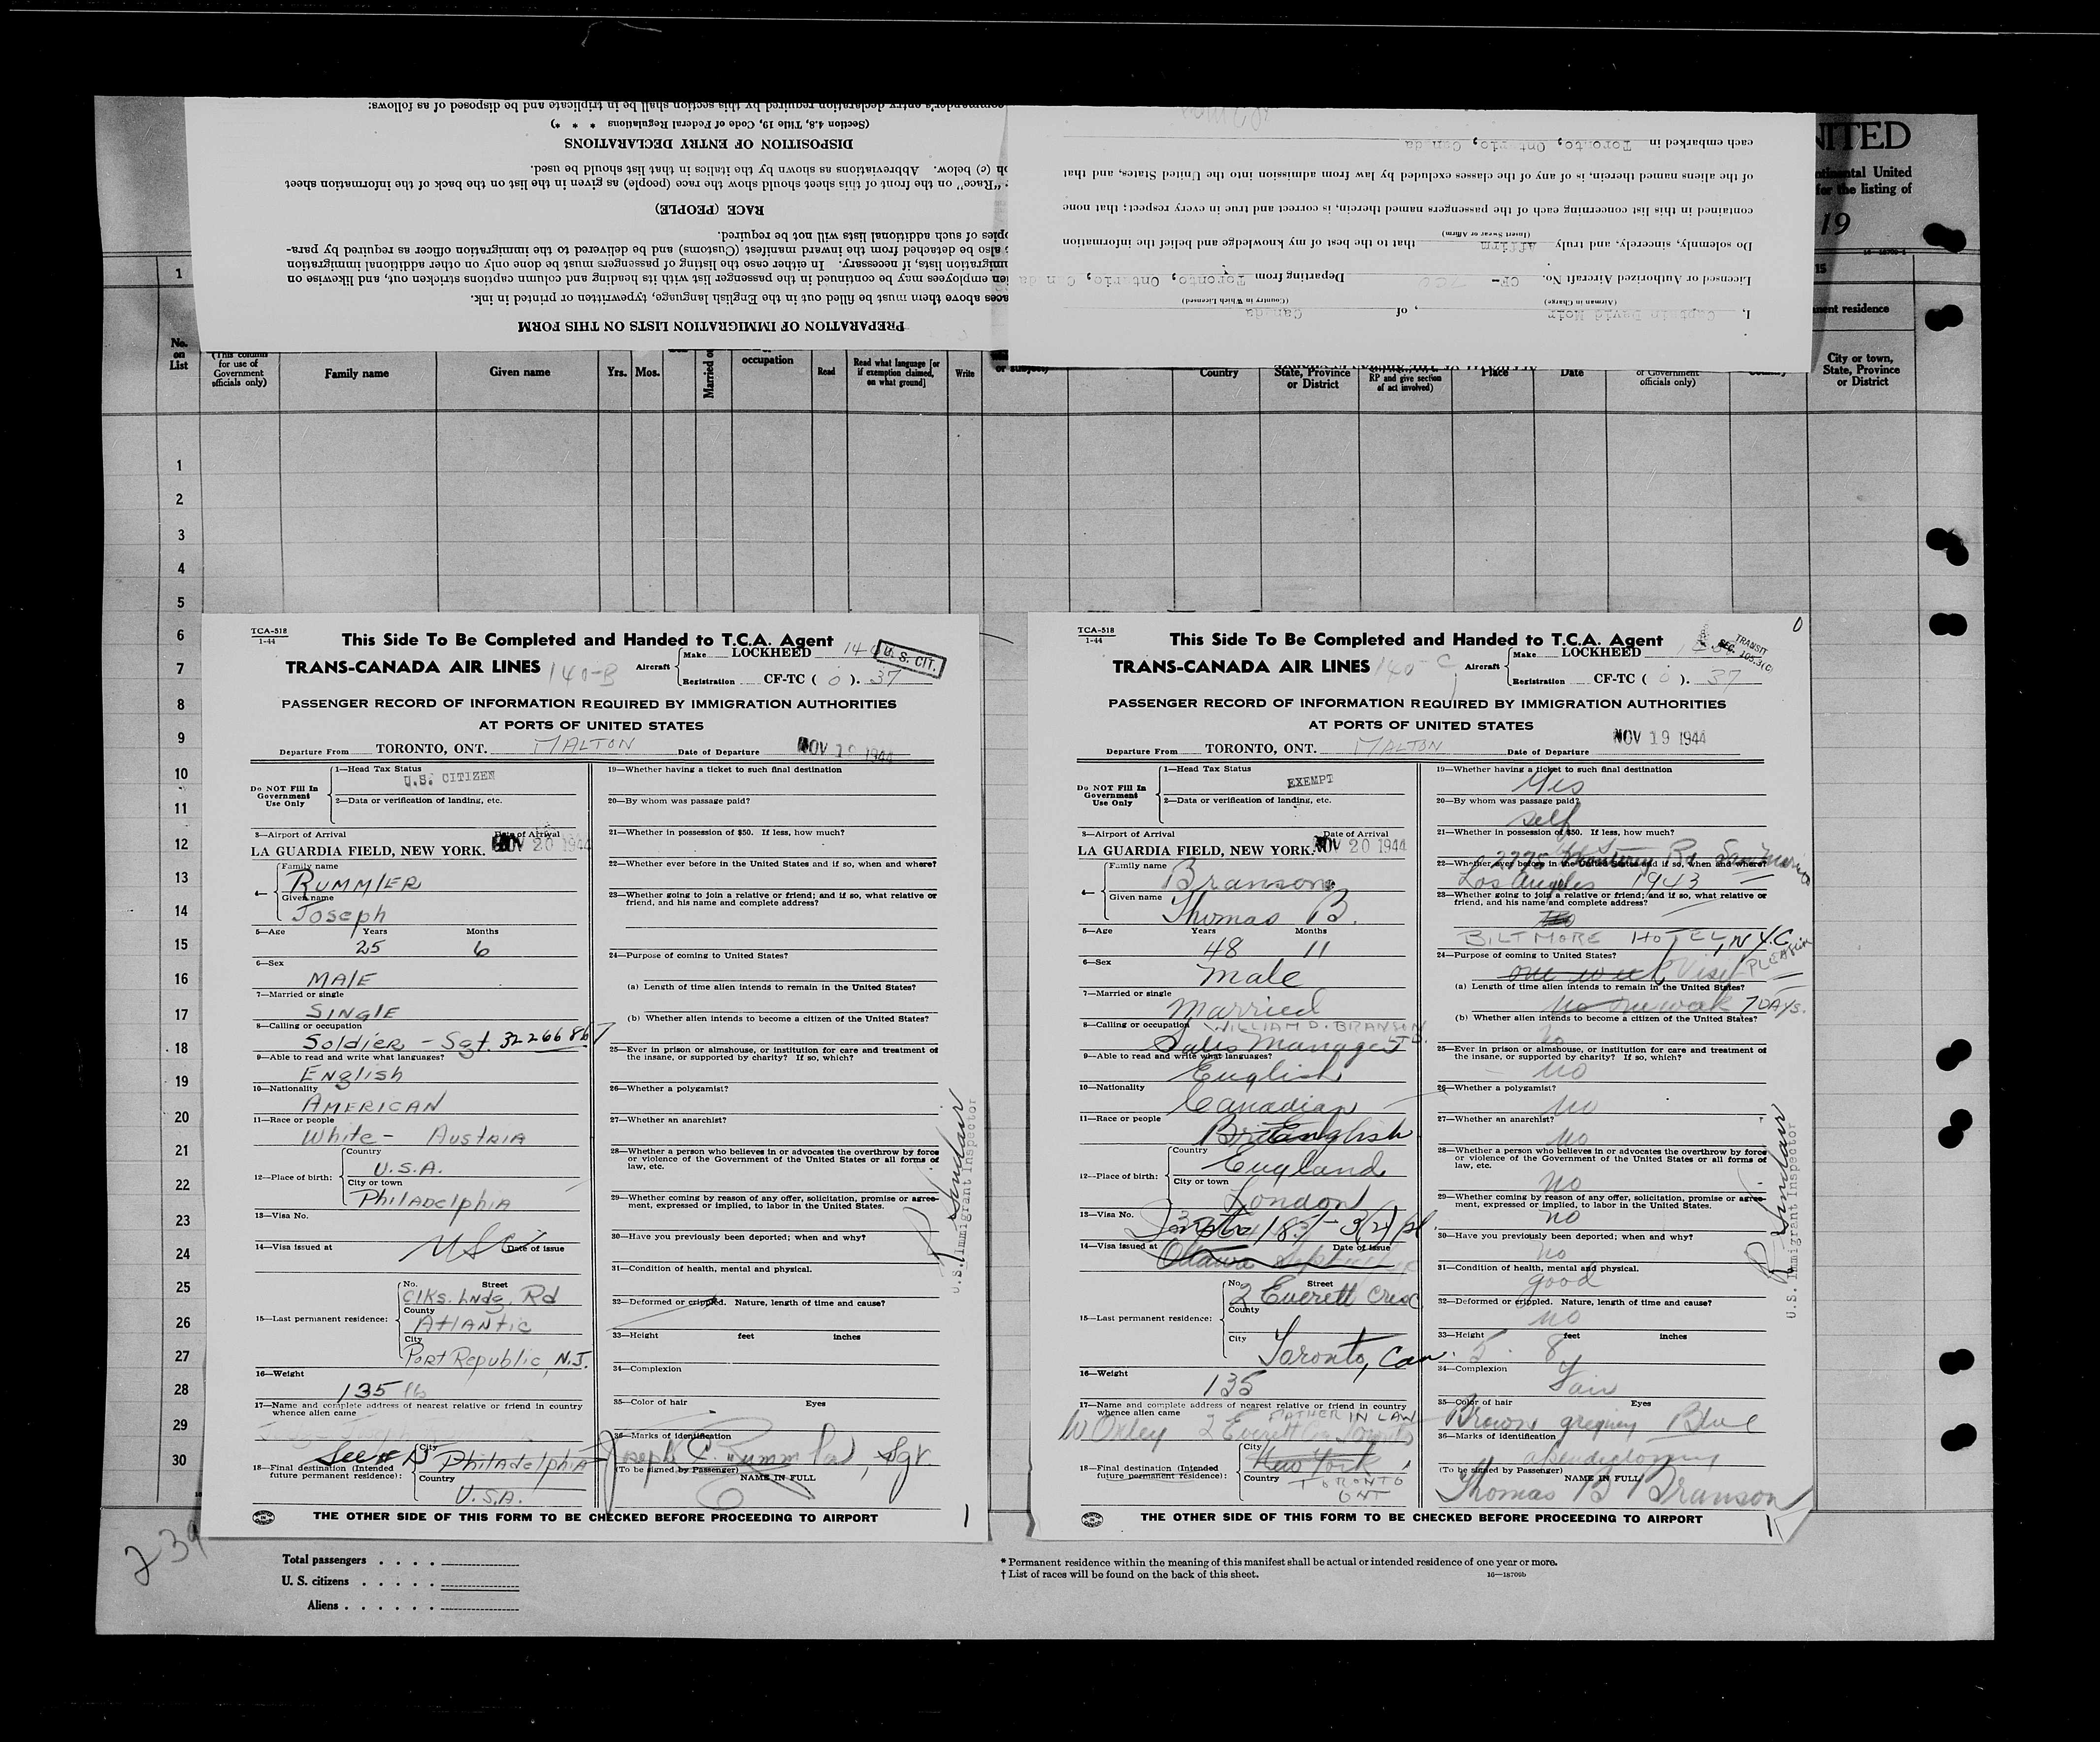 commander's entry declaration required by this section shall be in triplicate and be disposed of as follows:
(Section 4.8, Title 19, Code of Federal Regulations * * *)
DISPOSITION OF ENTRY DECLARATIONS
(c) below. Abbreviations as shown by the italics in that list should be used.
"Race" on the front of this sheet should show the race (people) as given in the list on the back of the information sheet
RACE (PEOPLE)
of such additional lists will not be required.
also be detached from the inward manifest (Customs) and be delivered to the immigration officer as required by para-
lists, if necessary. In either case the listing of passengers must be done only on other additional immigration
employees may be continued in the passenger list with its heading and column captions stricken out, and likewise on
above them must be filled out in the English language, typewritten or printed in ink.
PREPARATION OF IMMIGRATION LISTS ON THIS FORM
each embarked in Toronto, Ontario, Canada
of the aliens named therein, is of any of the classes excluded by law from admission into the United States, and that
contained in this list concerning each of the passengers named therein, is correct and true in every respect; that none
(Insert Swear or Affirm)
Do solemnly, sincerely, and truly Affirm that to the best of my knowledge and belief the information
Licensed or Authorized Aircraft No. CF- Departing from Toronto, Ontario, Canada
(Airman in Charge) (Country in Which Licensed)
I, Captain David , of Canada
United
for the listing of
19
residence
No. on List
(This column for use of Government officials only)
Family name
Given name
Yrs. Mos.
occupation
Read
Read what language [or if exemption claimed, on what ground]
Write
Country
State, Province or District
RP and give section of act involved)
Place
Date
of Government officials only)
City or town, State, Province or District
1
1
2
3
4
5
6
7
8
9
10
11
12
13
14
15
16
17
18
19
20
21
22
23
24
25
26
27
28
29
30
TCA-518
1-44
This Side To Be Completed and Handed to T.C.A. Agent
TRANS-CANADA AIR LINES 140-B
Aircraft Make LOCKHEED
U. S. CIT.
Registration CF-TC ( 0 ). 37
PASSENGER RECORD OF INFORMATION REQUIRED BY IMMIGRATION AUTHORITIES
AT PORTS OF UNITED STATES
Departure From TORONTO, ONT. MALTON Date of Departure NOV 19 1944
Do NOT Fill In Government Use Only
1—Head Tax Status
U.S. CITIZEN
2—Data or verification of landing, etc.
3—Airport of Arrival Date of Arrival
LA GUARDIA FIELD, NEW YORK. NOV 20 1944
4— Family name
RUMMLER
Given name
Joseph
5—Age Years Months
25 6
6—Sex
MALE
7—Married or single
SINGLE
8—Calling or occupation
Soldier - Sgt. 32266867
9—Able to read and write what languages?
English
10—Nationality
AMERICAN
11—Race or people
White - Austria
12—Place of birth: Country
U.S.A.
City or town
Philadelphia
13—Visa No.
14—Visa issued at Date of issue
USC
15—Last permanent residence: No. Street
Clks. Lndg. Rd
County
Atlantic
City
Port Republic, N.J.
16—Weight
135 lb
17—Name and complete address of nearest relative or friend in country whence alien came
See # 15
18—Final destination (Intended future permanent residence): City
Philadelphia
Country
U.S.A.
19—Whether having a ticket to such final destination
20—By whom was passage paid?
21—Whether in possession of $50. If less, how much?
22—Whether ever before in the United States and if so, when and where?
23—Whether going to join a relative or friend; and if so, what relative or friend, and his name and complete address?
24—Purpose of coming to United States?
(a) Length of time alien intends to remain in the United States?
(b) Whether alien intends to become a citizen of the United States?
25—Ever in prison or almshouse, or institution for care and treatment of the insane, or supported by charity? If so, which?
26—Whether a polygamist?
27—Whether an anarchist?
28—Whether a person who believes in or advocates the overthrow by force or violence of the Government of the United States or all forms of law, etc.
29—Whether coming by reason of any offer, solicitation, promise or agreement, expressed or implied, to labor in the United States.
30—Have you previously been deported; when and why?
31—Condition of health, mental and physical.
32—Deformed or crippled. Nature, length of time and cause?
33—Height feet inches
34—Complexion
35—Color of hair Eyes
36—Marks of identification
Joseph C. Rummler, Sgt.
(To be signed by Passenger) NAME IN FULL
R. Sinclair
U.S. Immigrant Inspector
THE OTHER SIDE OF THIS FORM TO BE CHECKED BEFORE PROCEEDING TO AIRPORT
1
TCA-518
1-44
This Side To Be Completed and Handed to T.C.A. Agent
0
TRANS-CANADA AIR LINES 140-C
Aircraft Make LOCKHEED
TRANSIT
SEC. 105.3(c)
Registration CF-TC ( 0 ). 37
PASSENGER RECORD OF INFORMATION REQUIRED BY IMMIGRATION AUTHORITIES
AT PORTS OF UNITED STATES
Departure From TORONTO, ONT. MALTON Date of Departure NOV 19 1944
Do NOT Fill In Government Use Only
1—Head Tax Status
EXEMPT
2—Data or verification of landing, etc.
3—Airport of Arrival Date of Arrival
LA GUARDIA FIELD, NEW YORK. NOV 20 1944
4— Family name
Branson
Given name
Thomas B.
5—Age Years Months
48 11
6—Sex
Male
7—Married or single
Married
8—Calling or occupation WILLIAM D. BRANSON LTD.
Sales Manager
9—Able to read and write what languages?
English
10—Nationality
Canadian
11—Race or people
English
12—Place of birth: Country
England
City or town
London
13—Visa No.
14—Visa issued at Date of issue
Ottawa
15—Last permanent residence: No. Street
2 Everett Cresc
County
City
Toronto, Can.
16—Weight
135
17—Name and complete address of nearest relative or friend in country whence alien came
FATHER IN LAW
W Oxley 2 Everett Toronto
18—Final destination (Intended future permanent residence): City
New York
Country
TORONTO
ONT
19—Whether having a ticket to such final destination
Yes
20—By whom was passage paid?
self
21—Whether in possession of $50. If less, how much?
22—Whether ever before in the United States and if so, when and where?
2275 Rd San Marino
Los Angeles 1943
23—Whether going to join a relative or friend; and if so, what relative or friend, and his name and complete address?
BILTMORE HOTEL, N.Y.C.
24—Purpose of coming to United States?
one week Visit
(a) Length of time alien intends to remain in the United States?
one week 7 DAYS.
(b) Whether alien intends to become a citizen of the United States?
no
25—Ever in prison or almshouse, or institution for care and treatment of the insane, or supported by charity? If so, which?
no
26—Whether a polygamist?
no
27—Whether an anarchist?
no
28—Whether a person who believes in or advocates the overthrow by force or violence of the Government of the United States or all forms of law, etc.
no
29—Whether coming by reason of any offer, solicitation, promise or agreement, expressed or implied, to labor in the United States.
no
30—Have you previously been deported; when and why?
no
31—Condition of health, mental and physical.
good
32—Deformed or crippled. Nature, length of time and cause?
no
33—Height feet inches
5 8
34—Complexion
Fair
35—Color of hair Eyes
Brown greying Blue
36—Marks of identification
(To be signed by Passenger) NAME IN FULL
Thomas B Branson
R. Sinclair
U.S. Immigrant Inspector
THE OTHER SIDE OF THIS FORM TO BE CHECKED BEFORE PROCEEDING TO AIRPORT
1
239
Total passengers
U. S. citizens
Aliens
* Permanent residence within the meaning of this manifest shall be actual or intended residence of one year or more.
† List of races will be found on the back of this sheet.
16—18709b